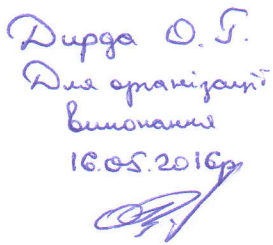 Дирда О. Г.
Для організації
виконання
16.05.2016р